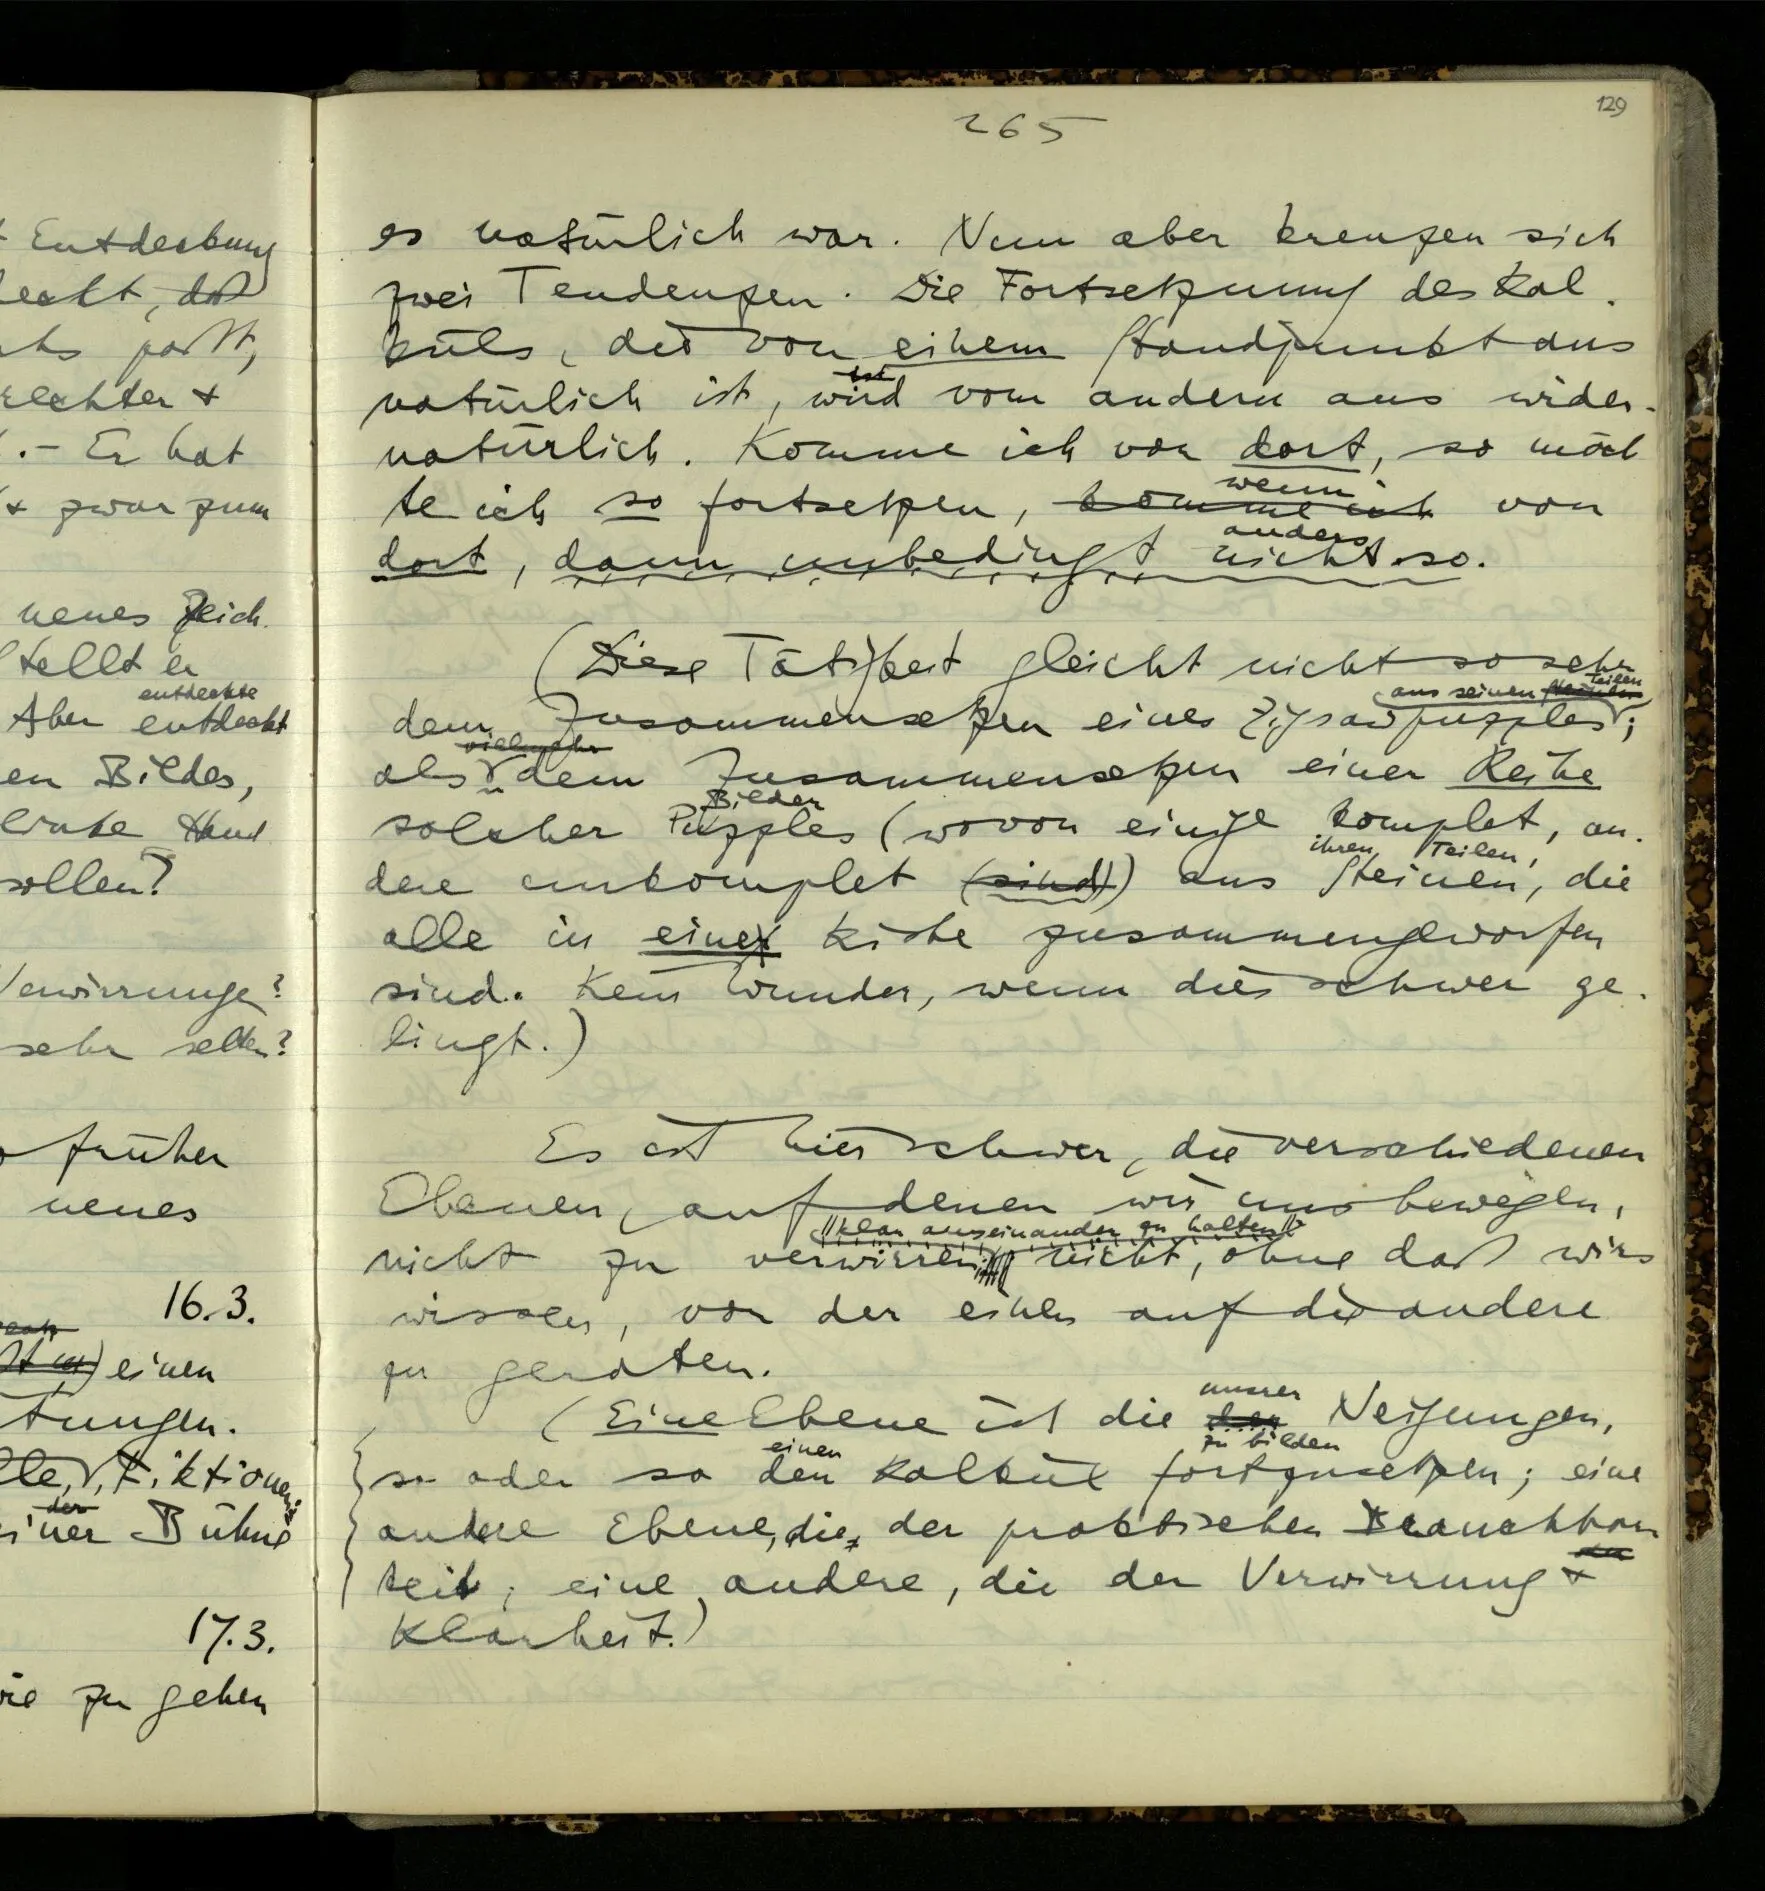 129
265
t Entdeckung
deckt, daß
paßt,
rechter &
.– Er hat
& zwar zum
neues Zeich
stellt er
entdeckte
Aber entdeckt
en Bildes,
linke Hand
sollen?
Verwirrungen?
sehr selten?
früher
neues
16.3.
einen
tungen.
Fiktionen
der
einer Bühne
17.3.
wie zu gehen
es natürlich war. Nun aber kreuzen sich
zwei Tendenzen. Die Fortsetzung des Kal-
küls, die von einem Standpunkt aus
ist
natürlich ist, wird vom andern aus wider-
natürlich. Komme ich von dort, so möch
te ich so fortsetzen, komme ich von
wenn
dort, dann unbedingt nicht so.
anders
(Diese Tätigkeit gleicht nicht so sehr
aus seinen Steinen
Teilen
dem Zusammensetzen eines Zigsawpuzzles;
vielmehr
als dem Zusammensetzen einer Reihe
Bilder
solcher Puzzles (wovon einige komplet, an-
ihren Teilen,
dere unkomplet (sind)) aus Steinen, die
alle in einer Kiste zusammengeworfen
sind. Kein Wunder, wenn dies schwer ge-
lingt.)
Es ist hier schwer, die verschiedenen
Ebenen, auf denen wir uns bewegen,
klar auseinander zu halten
nicht zu verwirren nicht, ohne daß wirs
wissen, von der einen auf die andere
zu geraten.
unsrer
(Eine Ebene ist die der Neigungen,
einen zu bilden
so oder so den Kalkül fortzusetzen; eine
andere Ebene, die der praktischen Brauchbar
keit; eine andere, die der Verwirrung &
Klarheit.)